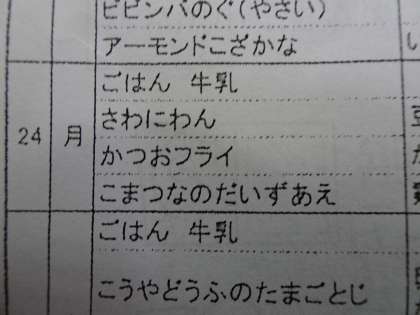 ビビンバのぐ(やさい)
アーモンドこざかな
24 月 ごはん 牛乳
さわにわん
かつおフライ
こまつなのだいずあえ
ごはん 牛乳
こうやどうふのたまごとじ